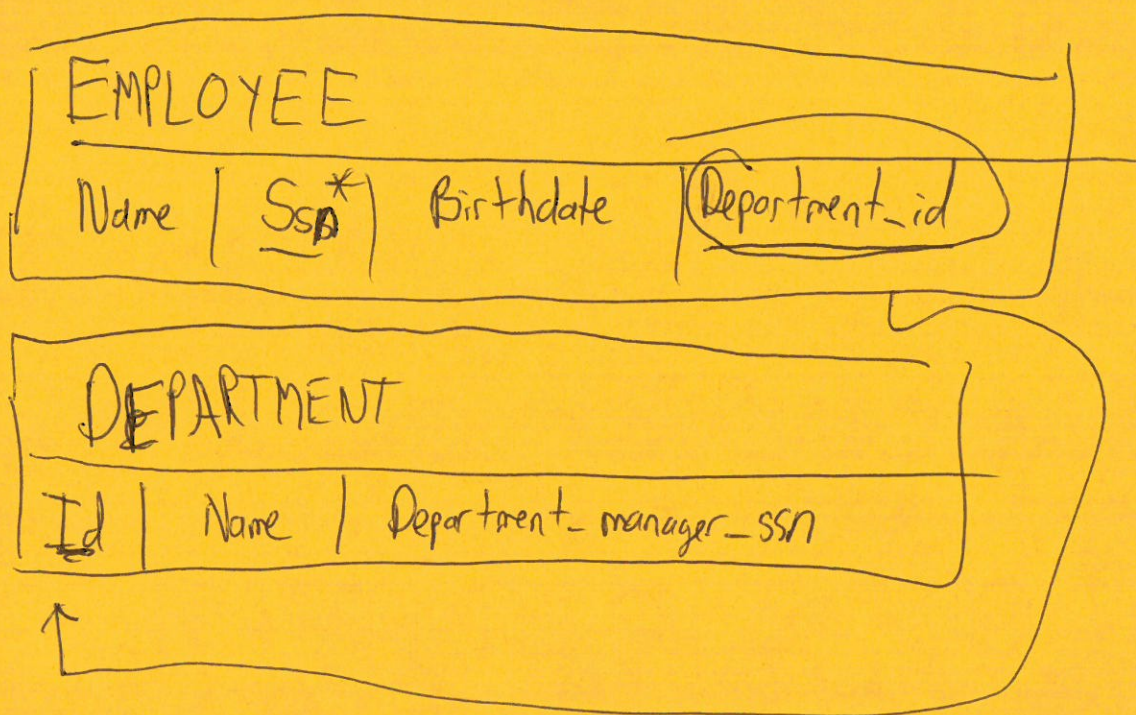 EMPLOYEE
Name | Ssn* | Birthdate | Department_id
DEPARTMENT
Id | Name | Department_manager_ssn